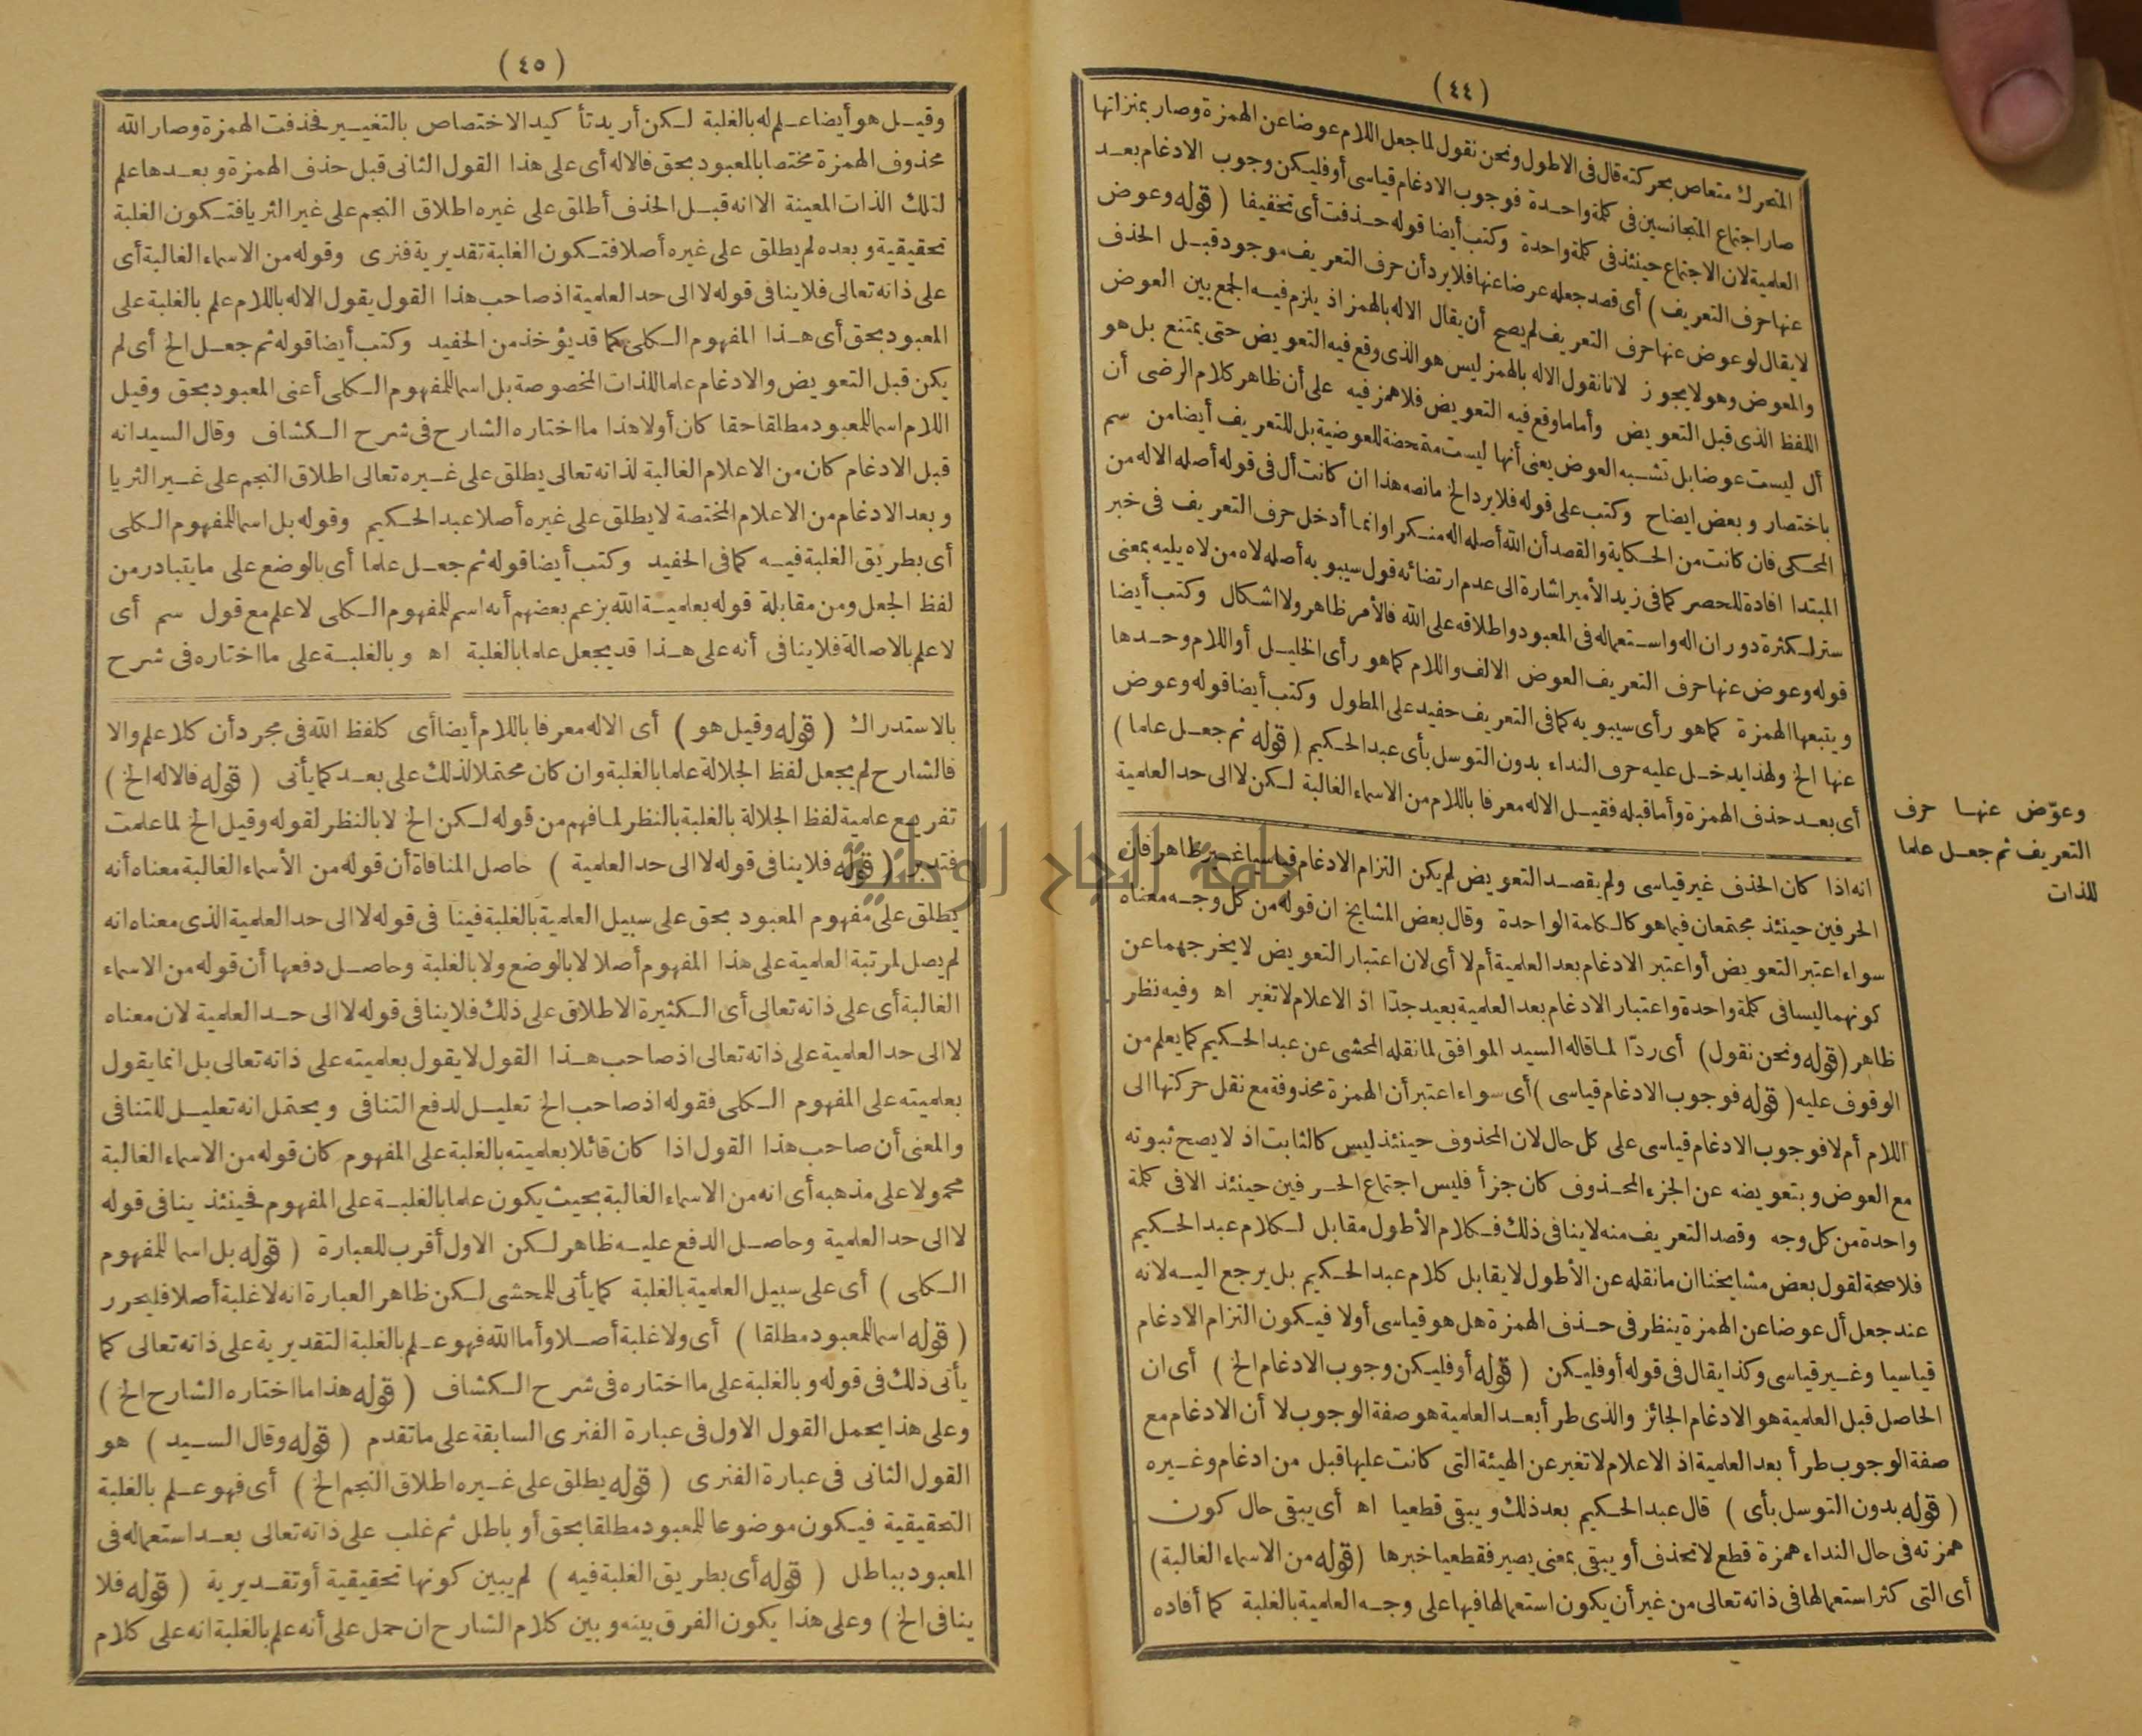 (٤٤)
المتحرك متعاص بحركته قال فى الاطول ونحن نقول لما جعل اللام عوضا عن الهمزة وصار بمنزلتها
صار اجتماع المتجانسين فى كلمة واحدة فوجوب الادغام قياسى أو فليكن وجوب الادغام بعد
العلمية لان الاجتماع حينئذ فى كلمة واحدة وكتب أيضا قوله حذفت أى تخفيفا (قوله وعوض
عنها حرف التعريف) أى قصد جعله عوضا عنها فلا يرد أن حرف التعريف موجود قبل الحذف
لا يقال لو عوض عنها حرف التعريف لم يصح أن يقال الاله بالهمز اذ يلزم فيه الجمع بين العوض
والمعوض وهو لا يجوز لانا نقول الاله بالهمز ليس هو الذى وقع فيه التعويض حتى يمتنع بل هو
اللفظ الذى قبل التعويض وأما ما وقع فيه التعويض فلا همز فيه على أن ظاهر كلام الرضى أن
أل ليست عوضا بل تشبه العوض يعنى أنها ليست متمحضة للعوضية بل للتعريف أيضا من سم
باختصار وبعض ايضاح وكتب على قوله فلا يرد الخ ما نصه هذا ان كانت أل فى قوله أصله الاله من
المحكى فان كانت من الحكاية والقصد أن الله أصله اله منكرا وانما أدخل حرف التعريف فى خبر
المبتدا افادة للحصر كما فى زيد الأمير اشارة الى عدم ارتضائه قول سيبويه أصله لاه من لاه يليه بمعنى
ستر لكثرة دوران اله واستعماله فى المعبود واطلاقه على الله فالأمر ظاهر ولا اشكال وكتب أيضا
قوله وعوض عنها حرف التعريف العوض الالف واللام كما هو رأى الخليل أو اللام وحدها
ويتبعها الهمزة كما هو رأى سيبويه كما فى التعريف حفيد على المطول وكتب أيضا قوله وعوض
عنها الخ ولهذا يدخل عليه حرف النداء بدون التوسل بأى عبد الحكيم (قوله ثم جعل علما)
أى بعد حذف الهمزة وأما قبله فقيل الاله معرفا باللام من الاسماء الغالبة لكن لا الى حد العلمية
وعوّض عنها حرف
التعريف ثم جعل علما
للذات
انه اذا كان الحذف غير قياسى ولم يقصد التعويض لم يكن التزام الادغام قياسيا غير ظاهر فان
الحرفين حينئذ مجتمعان فيما هو كالكلمة الواحدة وقال بعض المشايخ ان قوله من كل وجه معناه
سواء اعتبر التعويض أو اعتبر الادغام بعد العلمية أم لا أى لان اعتبار التعويض لا يخرجهما عن
كونهما ليسا فى كلمة واحدة واعتبار الادغام بعد العلمية بعيد جدّا اذ الاعلام لا تغير اه وفيه نظر
ظاهر (قوله ونحن نقول) أى ردّا لما قاله السيد الموافق لما نقله المحشى عن عبد الحكيم كما يعلم من
الوقوف عليه (قوله فوجوب الادغام قياسى) أى سواء اعتبر أن الهمزة محذوفة مع نقل حركتها الى
اللام أم لا فوجوب الادغام قياسى على كل حال لان المحذوف حينئذ ليس كالثابت اذ لا يصح ثبوته
مع العوض وبتعويضه عن الجزء المحذوف كان جزأ فليس اجتماع الحرفين حينئذ الا فى كلمة
واحدة من كل وجه وقصد التعريف منه لا ينافى ذلك فكلام الأطول مقابل لكلام عبد الحكيم
فلا صحة لقول بعض مشايخنا ان ما نقله عن الأطول لا يقابل كلام عبد الحكيم بل يرجع اليه لانه
عند جعل أل عوضا عن الهمزة ينظر فى حذف الهمزة هل هو قياسى أو لا فيكون التزام الادغام
قياسيا وغير قياسى وكذا يقال فى قوله أو فليكن (قوله أو فليكن وجوب الادغام الخ) أى ان
الحاصل قبل العلمية هو الادغام الجائز والذى طرأ بعد العلمية هو صفة الوجوب لا أن الادغام مع
صفة الوجوب طرأ بعد العلمية اذ الاعلام لا تغير عن الهيئة التى كانت عليها قبل من ادغام وغيره
(قوله بدون التوسل بأى) قال عبد الحكيم بعد ذلك ويبقى قطعيا اه أى يبقى حال كون
همزته فى حال النداء همزة قطع لا تحذف أو يبقى بمعنى يصير فقطعيا خبرها (قوله من الاسماء الغالبة)
أى التى كثر استعمالها فى ذاته تعالى من غير أن يكون استعمالها فيها على وجه العلمية بالغلبة كما أفاده
(٤٥)
وقيل هو أيضا علم له بالغلبة لكن أريد تأكيد الاختصاص بالتغيير فحذفت الهمزة وصار الله
محذوف الهمزة مختصا بالمعبود بحق فالاله أى على هذا القول الثانى قبل حذف الهمزة وبعدها علم
لتلك الذات المعينة الا انه قبل الحذف أطلق على غيره اطلاق النجم على غير الثريا فتكون الغلبة
تحقيقية وبعده لم يطلق على غيره أصلا فتكون الغلبة تقديرية فنرى وقوله من الاسماء الغالبة أى
على ذاته تعالى فلا ينافى قوله لا الى حد العلمية اذ صاحب هذا القول يقول الاله باللام علم بالغلبة على
المعبود بحق أى هذا المفهوم الكلى كما قد يؤخذ من الحفيد وكتب أيضا قوله ثم جعل الخ أى لم
يكن قبل التعويض والادغام علما للذات المخصوصة بل اسما للمفهوم الكلى أعنى المعبود بحق وقيل
اللام اسما للمعبود مطلقا حقا كان أو لا هذا ما اختاره الشارح فى شرح الكشاف وقال السيد انه
قبل الادغام كان من الاعلام الغالبة لذاته تعالى يطلق على غيره تعالى اطلاق النجم على غير الثريا
وبعد الادغام من الاعلام المختصة لا يطلق على غيره أصلا عبد الحكيم وقوله بل اسما للمفهوم الكلى
أى بطريق الغلبة فيه كما فى الحفيد وكتب أيضا قوله ثم جعل علما أى بالوضع على ما يتبادر من
لفظ الجعل ومن مقابلة قوله بعلمية الله بزعم بعضهم أنه اسم للمفهوم الكلى لا علم مع قول سم أى
لا علم بالاصالة فلا ينافى أنه على هذا قد يجعل علما بالغلبة اه وبالغلبة على ما اختاره فى شرح
بالاستدراك (قوله وقيل هو) أى الاله معرفا باللام أيضا أى كلفظ الله فى مجرد أن كلا علم والا
فالشارح لم يجعل لفظ الجلالة علما بالغلبة وان كان محتملا لذلك على بعد كما يأتى (قوله فالاله الخ)
تفريع علمية لفظ الجلالة بالغلبة بالنظر لما فهم من قوله لكن الخ لا بالنظر لقوله وقيل الخ لما علمت
فتدبر (قوله فلا ينافى قوله لا الى حد العلمية) حاصل المنافاة أن قوله من الأسماء الغالبة معناه أنه
يطلق على مفهوم المعبود بحق على سبيل العلمية بالغلبة فينا فى قوله لا الى حد العلمية الذى معناه انه
لم يصل لمرتبة العلمية على هذا المفهوم أصلا لا بالوضع ولا بالغلبة وحاصل دفعها أن قوله من الاسماء
الغالبة أى على ذاته تعالى أى الكثيرة الاطلاق على ذلك فلا ينافى قوله لا الى حد العلمية لان معناه
لا الى حد العلمية على ذاته تعالى اذ صاحب هذا القول لا يقول بعلميته على ذاته تعالى بل انما يقول
بعلميته على المفهوم الكلى فقوله اذ صاحب الخ تعليل لدفع التنافى ويحتمل انه تعليل للتنافى
والمعنى أن صاحب هذا القول اذا كان قائلا بعلميته بالغلبة على المفهوم كان قوله من الاسماء الغالبة
محمولا على مذهبه أى انه من الاسماء الغالبة بحيث يكون علما بالغلبة على المفهوم فحينئذ ينافى قوله
لا الى حد العلمية وحاصل الدفع عليه ظاهر لكن الاول أقرب للعبارة (قوله بل اسما للمفهوم
الكلى) أى على سبيل العلمية بالغلبة كما يأتى للمحشى لكن ظاهر العبارة انه لا غلبة أصلا فليحرر
(قوله اسما للمعبود مطلقا) أى ولا غلبة أصلا وأما الله فهو علم بالغلبة التقديرية على ذاته تعالى كما
يأتى ذلك فى قوله وبالغلبة على ما اختاره فى شرح الكشاف (قوله هذا ما اختاره الشارح الخ)
وعلى هذا يحمل القول الاول فى عبارة الفنرى السابقة على ما تقدم (قوله وقال السيد) هو
القول الثانى فى عبارة الفنرى (قوله يطلق على غيره اطلاق النجم الخ) أى فهو علم بالغلبة
التحقيقية فيكون موضوعا للمعبود مطلقا بحق أو باطل ثم غلب على ذاته تعالى بعد استعماله فى
المعبود بباطل (قوله أى بطريق الغلبة فيه) لم يبين كونها تحقيقية أو تقديرية (قوله فلا
ينافى الخ) وعلى هذا يكون الفرق بينه وبين كلام الشارح ان حمل على أنه علم بالغلبة انه على كلام
جامعة النجاح الوطنية